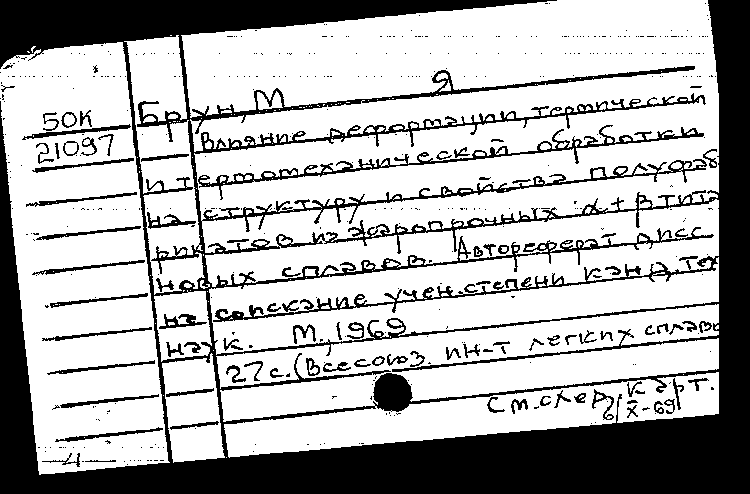 50К Брун, М Я
21097 Влияние деформации, термической
и термомеханической обработки
на структуру и свойства полуфаб
рикатов из жаропрочных α+β тита
новых сплавов. Автореферат дисс
на соискание учен. степени канд. тех
наук. М., 1969.
27с. (Всесоюз. ин-т легких сплаво
См. след. карт.
6/X-69